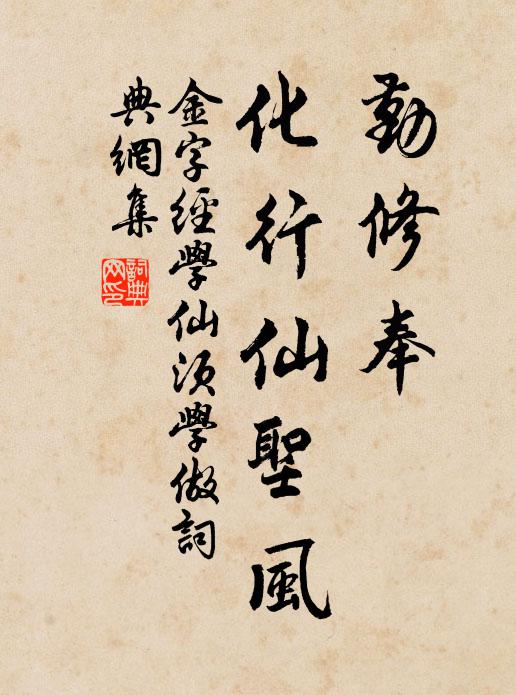 勤修奉
化行仙聖風
金字經學仙須學做詞
典網集
詞典網印